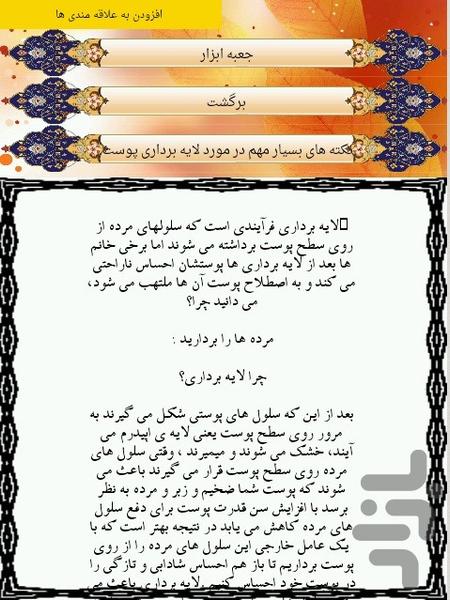 افزودن به علاقه مندی ها
جعبه ابزار
برگشت
نکته های بسیار مهم در مورد لایه برداری پوست
لایه برداری فرآیندی است که سلولهای مرده از
روی سطح پوست برداشته می شوند اما برخی خانم
ها بعد از لایه برداری ها پوستشان احساس ناراحتی
می کند و به اصطلاح پوست آن ها ملتهب می شود،
می دانید چرا؟
مرده ها را بردارید :
چرا لایه برداری؟
بعد از این که سلول های پوستی شکل می گیرند به
مرور روی سطح پوست یعنی لایه ی اپیدرم می
آیند، خشک می شوند و میمیرند ، وقتی سلول های
مرده روی سطح پوست قرار می گیرند باعث می
شوند که پوست شما ضخیم و زبر و مرده به نظر
برسد با افزایش سن قدرت پوست برای دفع سلول
های مرده کاهش می یابد در نتیجه بهتر است که با
یک عامل خارجی این سلول های مرده را از روی
پوست برداریم تا باز هم احساس شادابی و تازگی را
در پوست خود احساس کنیم .لایه برداری باعث می
بازار